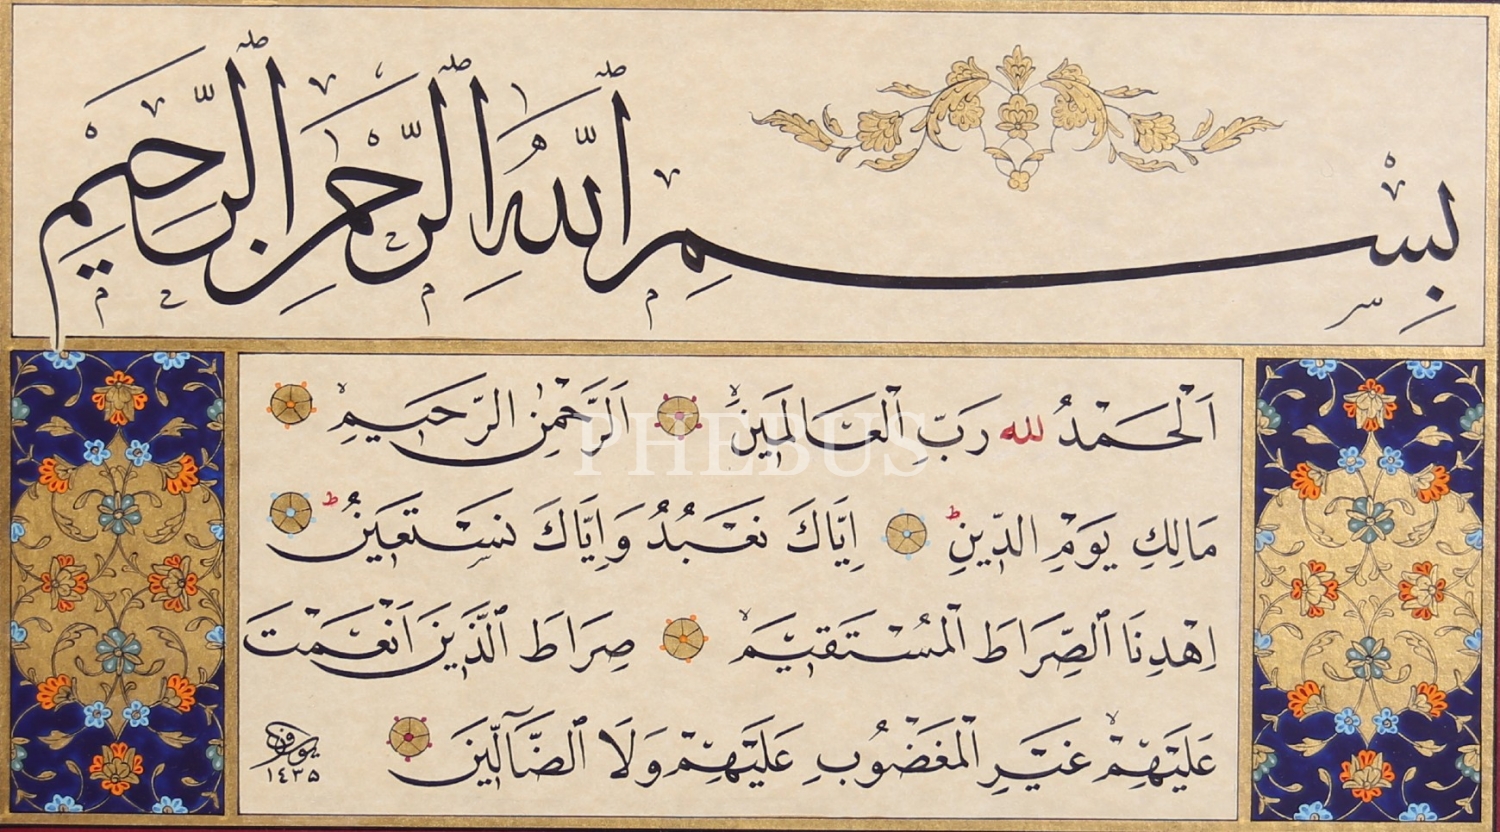 بِسْمِ ٱللَّهِ ٱلرَّحْمٰنِ ٱلرَّحِيمِ
اَلْحَمْدُ لله رَبِّ الْعَالَمِينَ اَلرَّحْمٰنِ الرَّحِيمِ
مَالِكِ يَوْمِ الدِّينِ ط اِيَّاكَ نَعْبُدُ وَاِيَّاكَ نَسْتَعِينُ ط
اِهْدِنَا ٱلصِّرَاطَ الْمُسْتَقِيمَ صِرَاطَ ٱلَّذِينَ اَنْعَمْتَ
عَلَيْهِمْ غَيْرِ الْمَغْضُوبِ عَلَيْهِمْ وَلَا ٱلضَّٓالِّينَ
١٤٣٥
PHEBUS